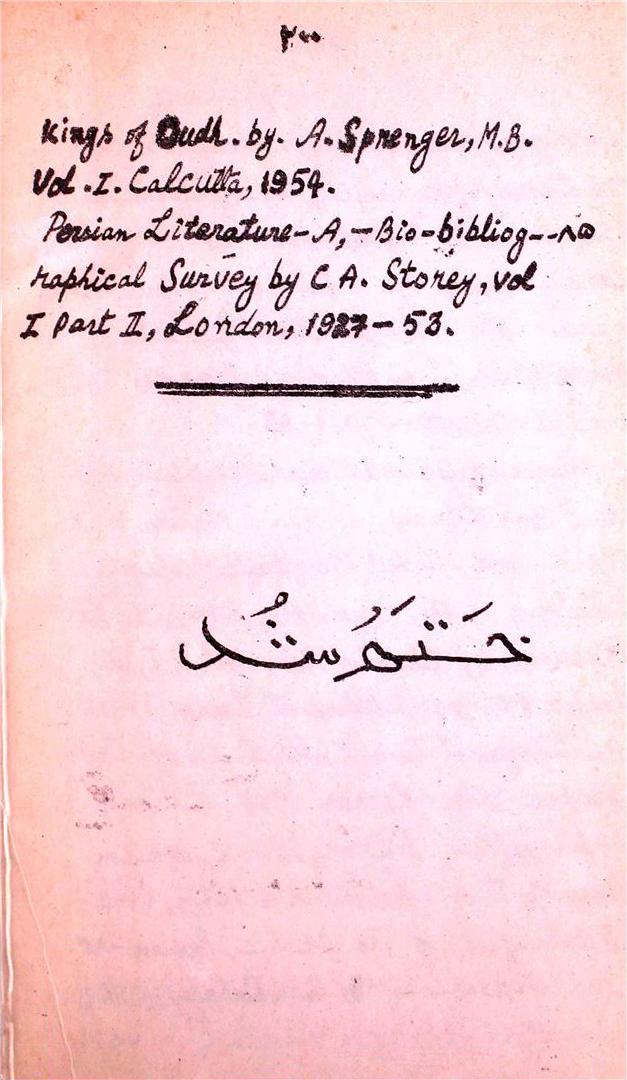 ۲۰۰
Kings of Oudh. by. A. Sprenger, M.B.
Vol. I. Calcutta, 1954.
Persian Literature - A, - Bio-bibliog-- ۸۵
raphical Survey by C A. Storey, vol
I Part II, London, 1927-53.
خَتَم شُد